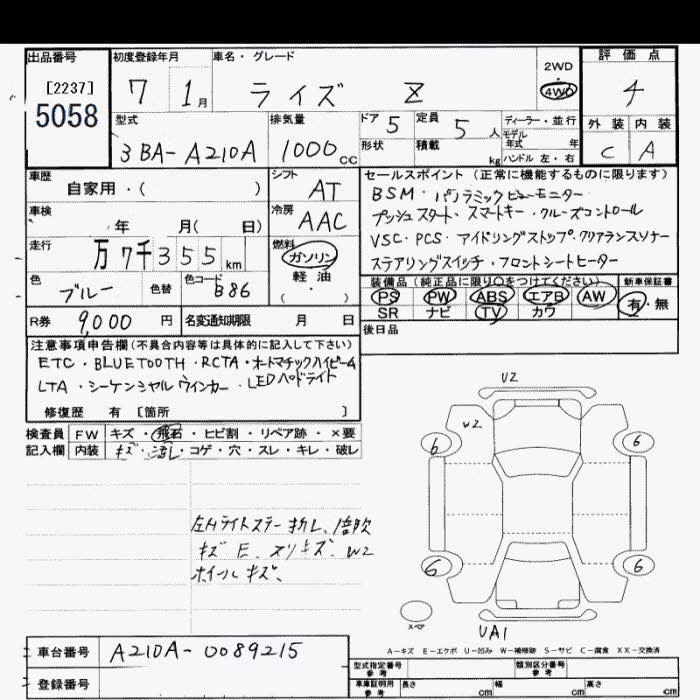 出品番号
[2237]
5058
初度登録年月
7 1月
車名・グレード
ライズ Z
2WD
・
4WD
評価点
4
外装 内装
C A
型式
3BA-A210A
排気量
1000cc
ドア 5
定員 5人
形状
積載 kg
ディーラー・並行
モデル年式 年
ハンドル 左・右
車歴
自家用・( )
シフト
AT
車検
年 月( 日)
冷房
AAC
走行
万7千355km
燃料
ガソリン
軽油
( ・ )
色
ブルー
色替
色コード
B86
R券 9,000円
名変通知期限 月 日
セールスポイント(正常に機能するものに限ります)
BSM・パノラミックビューモニター
プッシュスタート・スマートキー・クルーズコントロール
VSC・PCS・アイドリングストップ・クリアランスソナー
ステアリングスイッチ・フロントシートヒーター
装備品(純正品に限り○をつけてください)
PS PW ABS エアB AW
SR ナビ TV カワ
新車保証書
有・無
後日品
注意事項申告欄(不具合内容等は具体的に記入して下さい)
ETC・BLUETOOTH・RCTA・オートマチックハイビーム
LTA・シーケンシャルウインカー・LEDヘッドライト
修復歴 有 [箇所 ]
検査員 FW キズ・飛石・ヒビ割・リペア跡・×要
記入欄 内装 キズ・汚れ・コゲ・穴・スレ・キレ・破レ
左Hライトステー折れ、
キズE、スリキズ、W2
ホイールキズ、
U2
W2
6 6
6 6
スペア
UA1
A-キズ E-エクボ U-凹み W-補修跡 S-サビ C-腐食 XX-交換済
車台番号 A210A-0089215
登録番号
型式指定番号
参考
類別区分番号
参考
車庫証明用
参考
長さ cm 幅 cm 高さ cm